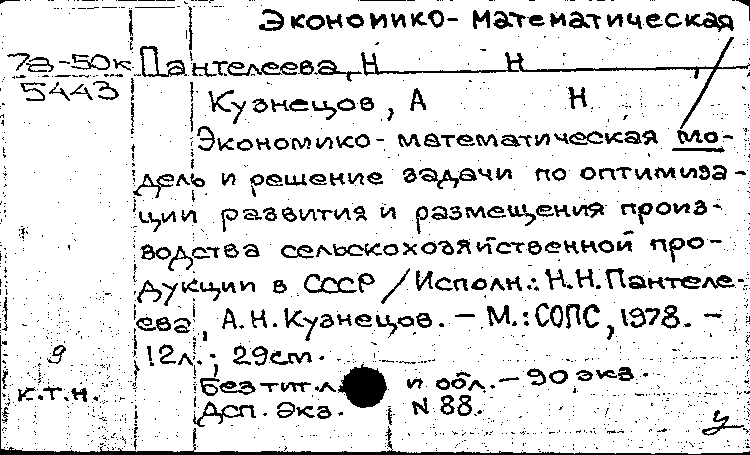 Экономико-математическая
7а-50к Пантелеева, Н Н ,
5443
Кузнецов, А Н
Экономико-математическая мо-
дель и решение задачи по оптимиза-
ции развития и размещения произ-
водства сельскохозяйственной про-
дукции в СССР / Исполн.: Н.Н.Пантеле-
ева, А.Н.Кузнецов. – М.: СОПС, 1978. –
9 12л.; 29см.
Без тит.л. и обл. – 90 экз.
к.т.н. Дсп. Экз. N 88.
у